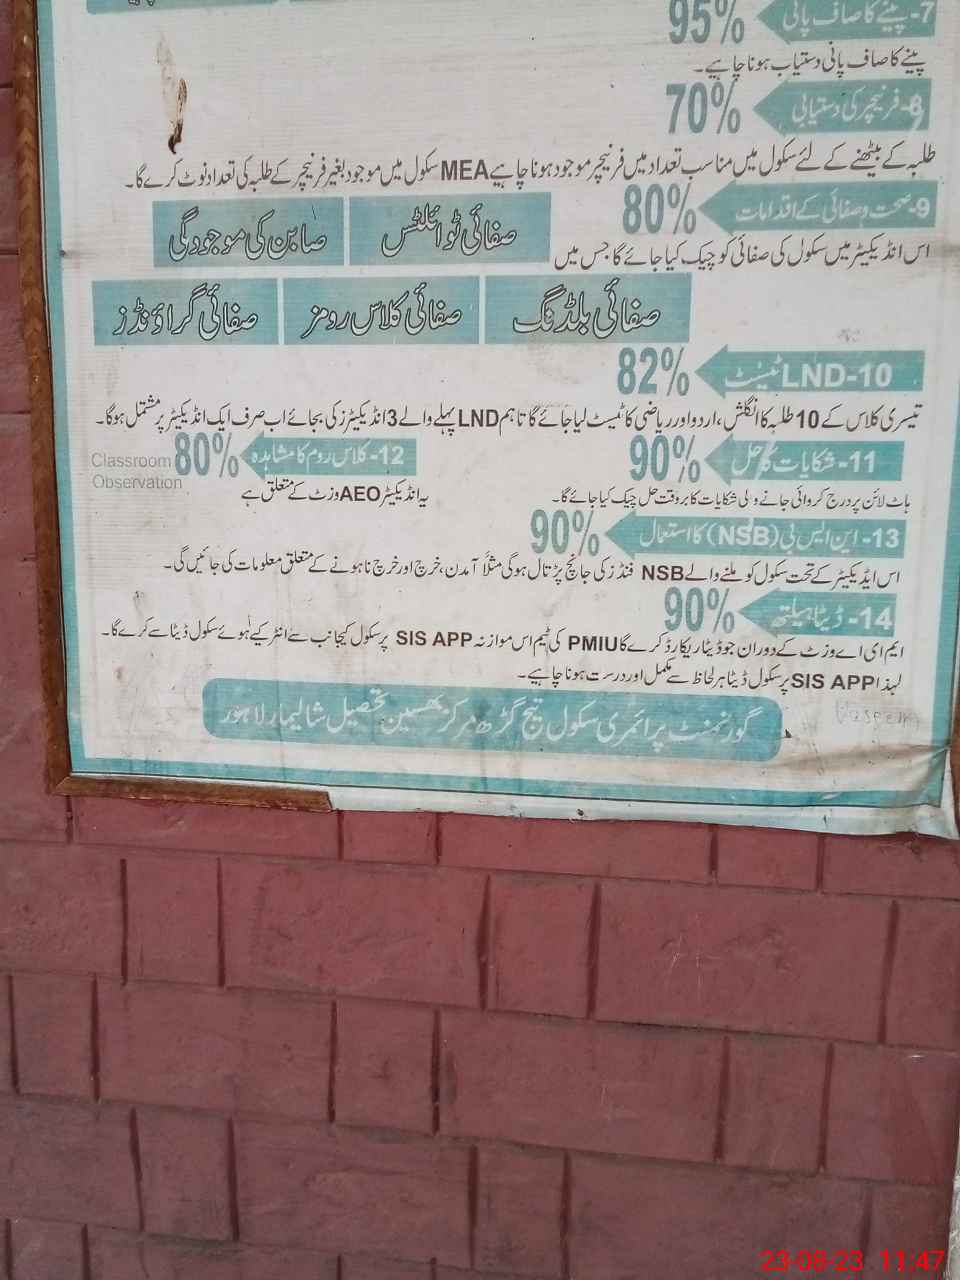 7- پینے کا صاف پانی 95%
پینے کا صاف پانی دستیاب ہونا چاہیے۔
8- فرنیچر کی دستیابی 70%
طلبہ کے بیٹھنے کے لئے سکول میں مناسب تعداد میں فرنیچر موجود ہونا چاہیے MEA سکول میں موجود بغیر فرنیچر کے طلبہ کی تعداد نوٹ کرے گا۔
9- صحت و صفائی کے اقدامات 80%
اس انڈیکیٹر میں سکول کی صفائی کو چیک کیا جائے گا جس میں
صفائی ٹوائلٹس صابن کی موجودگی
صفائی بلڈنگ صفائی کلاس رومز صفائی گراؤنڈز
LND-10 ٹیسٹ 82%
تیسری کلاس کے 10 طلبہ کا انگلش، اردو اور ریاضی کا ٹیسٹ لیا جائے گا تاہم LND پہلے والے 3 انڈیکیٹرز کی بجائے اب صرف ایک انڈیکیٹر پر مشتمل ہوگا۔
11- شکایات کا حل 90%
ہاٹ لائن پر درج کروائی جانے والی شکایات کا بروقت حل چیک کیا جائے گا۔
12- کلاس روم کا مشاہدہ 80% Classroom Observation
یہ انڈیکیٹر AEO وزٹ کے متعلق ہے
13- این ایس بی (NSB) کا استعمال 90%
اس انڈیکیٹر کے تحت سکول کو ملنے والے NSB فنڈز کی جانچ پڑتال ہوگی مثلاً آمدن، خرچ اور خرچ نا ہونے کے متعلق معلومات کی جائیں گی۔
14- ڈیٹا ہیلتھ 90%
ایم ای اے وزٹ کے دوران جو ڈیٹا ریکارڈ کرے گا PMIU کی ٹیم اس موازنہ SIS APP پر سکول کیجانب سے انٹر کیے ہوئے سکول ڈیٹا سے کرے گا۔
لہذا SIS APP پر سکول ڈیٹا ہر لحاظ سے مکمل اور درست ہونا چاہیے۔
گورنمنٹ پرائمری سکول تیج گڑھ مرکز بھسین تحصیل شالیمار لاہور
23-08-23 11:47